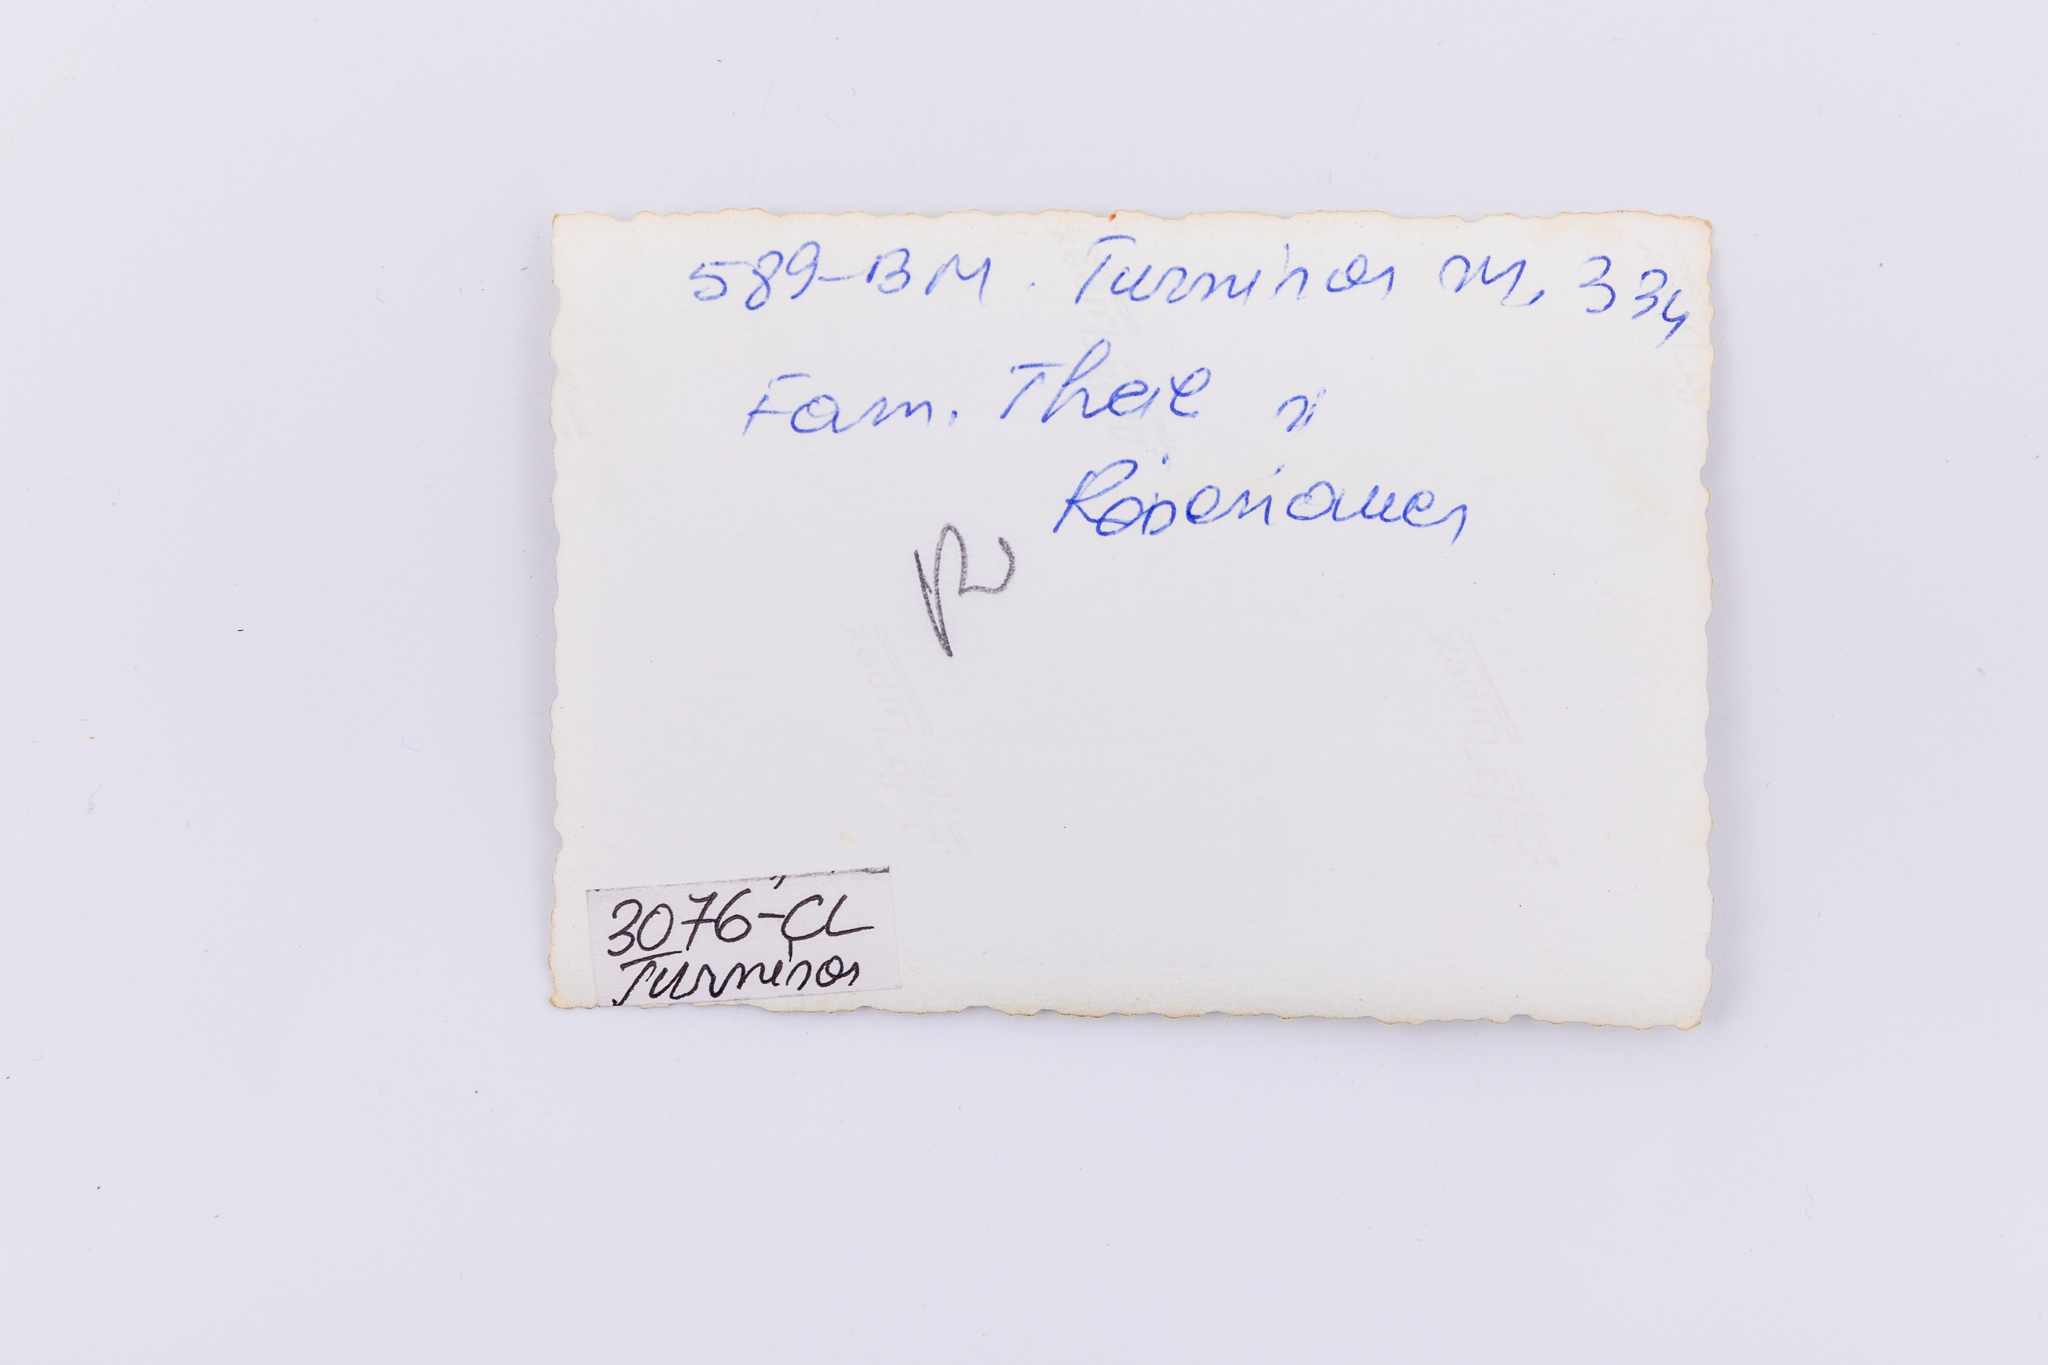 589-BM. Turnisor nr. 334
Fam. Theil si
Rosenauer
3076-CL
Turnisor